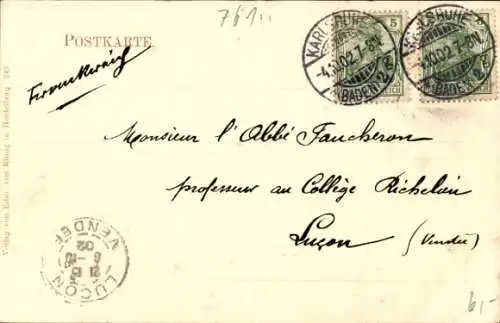 761..
POSTKARTE.
5
5
KARLSRUHE
-4.10.02.7-8N.
(BADEN) 2 g
KARLSRUHE
-4.10.02.7-8N.
(BADEN) 2 g
Frankreich
Monsieur l'Abbé Faucheron
professeur au Collège Richelieu
Luçon (Vendée)
LUÇON
VENDEE
02
6,-
Verlag von Edm. von König in Heidelberg